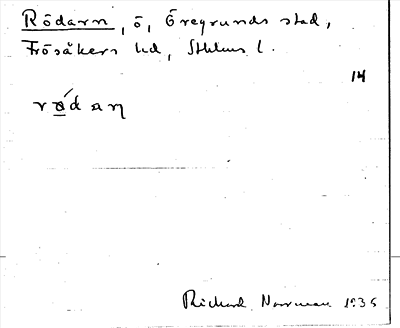 Rödarn, ö, Öregrunds stad,
Frösåkers hd, Sthlms l.
14
rǿdan
Richard Norrman 1935